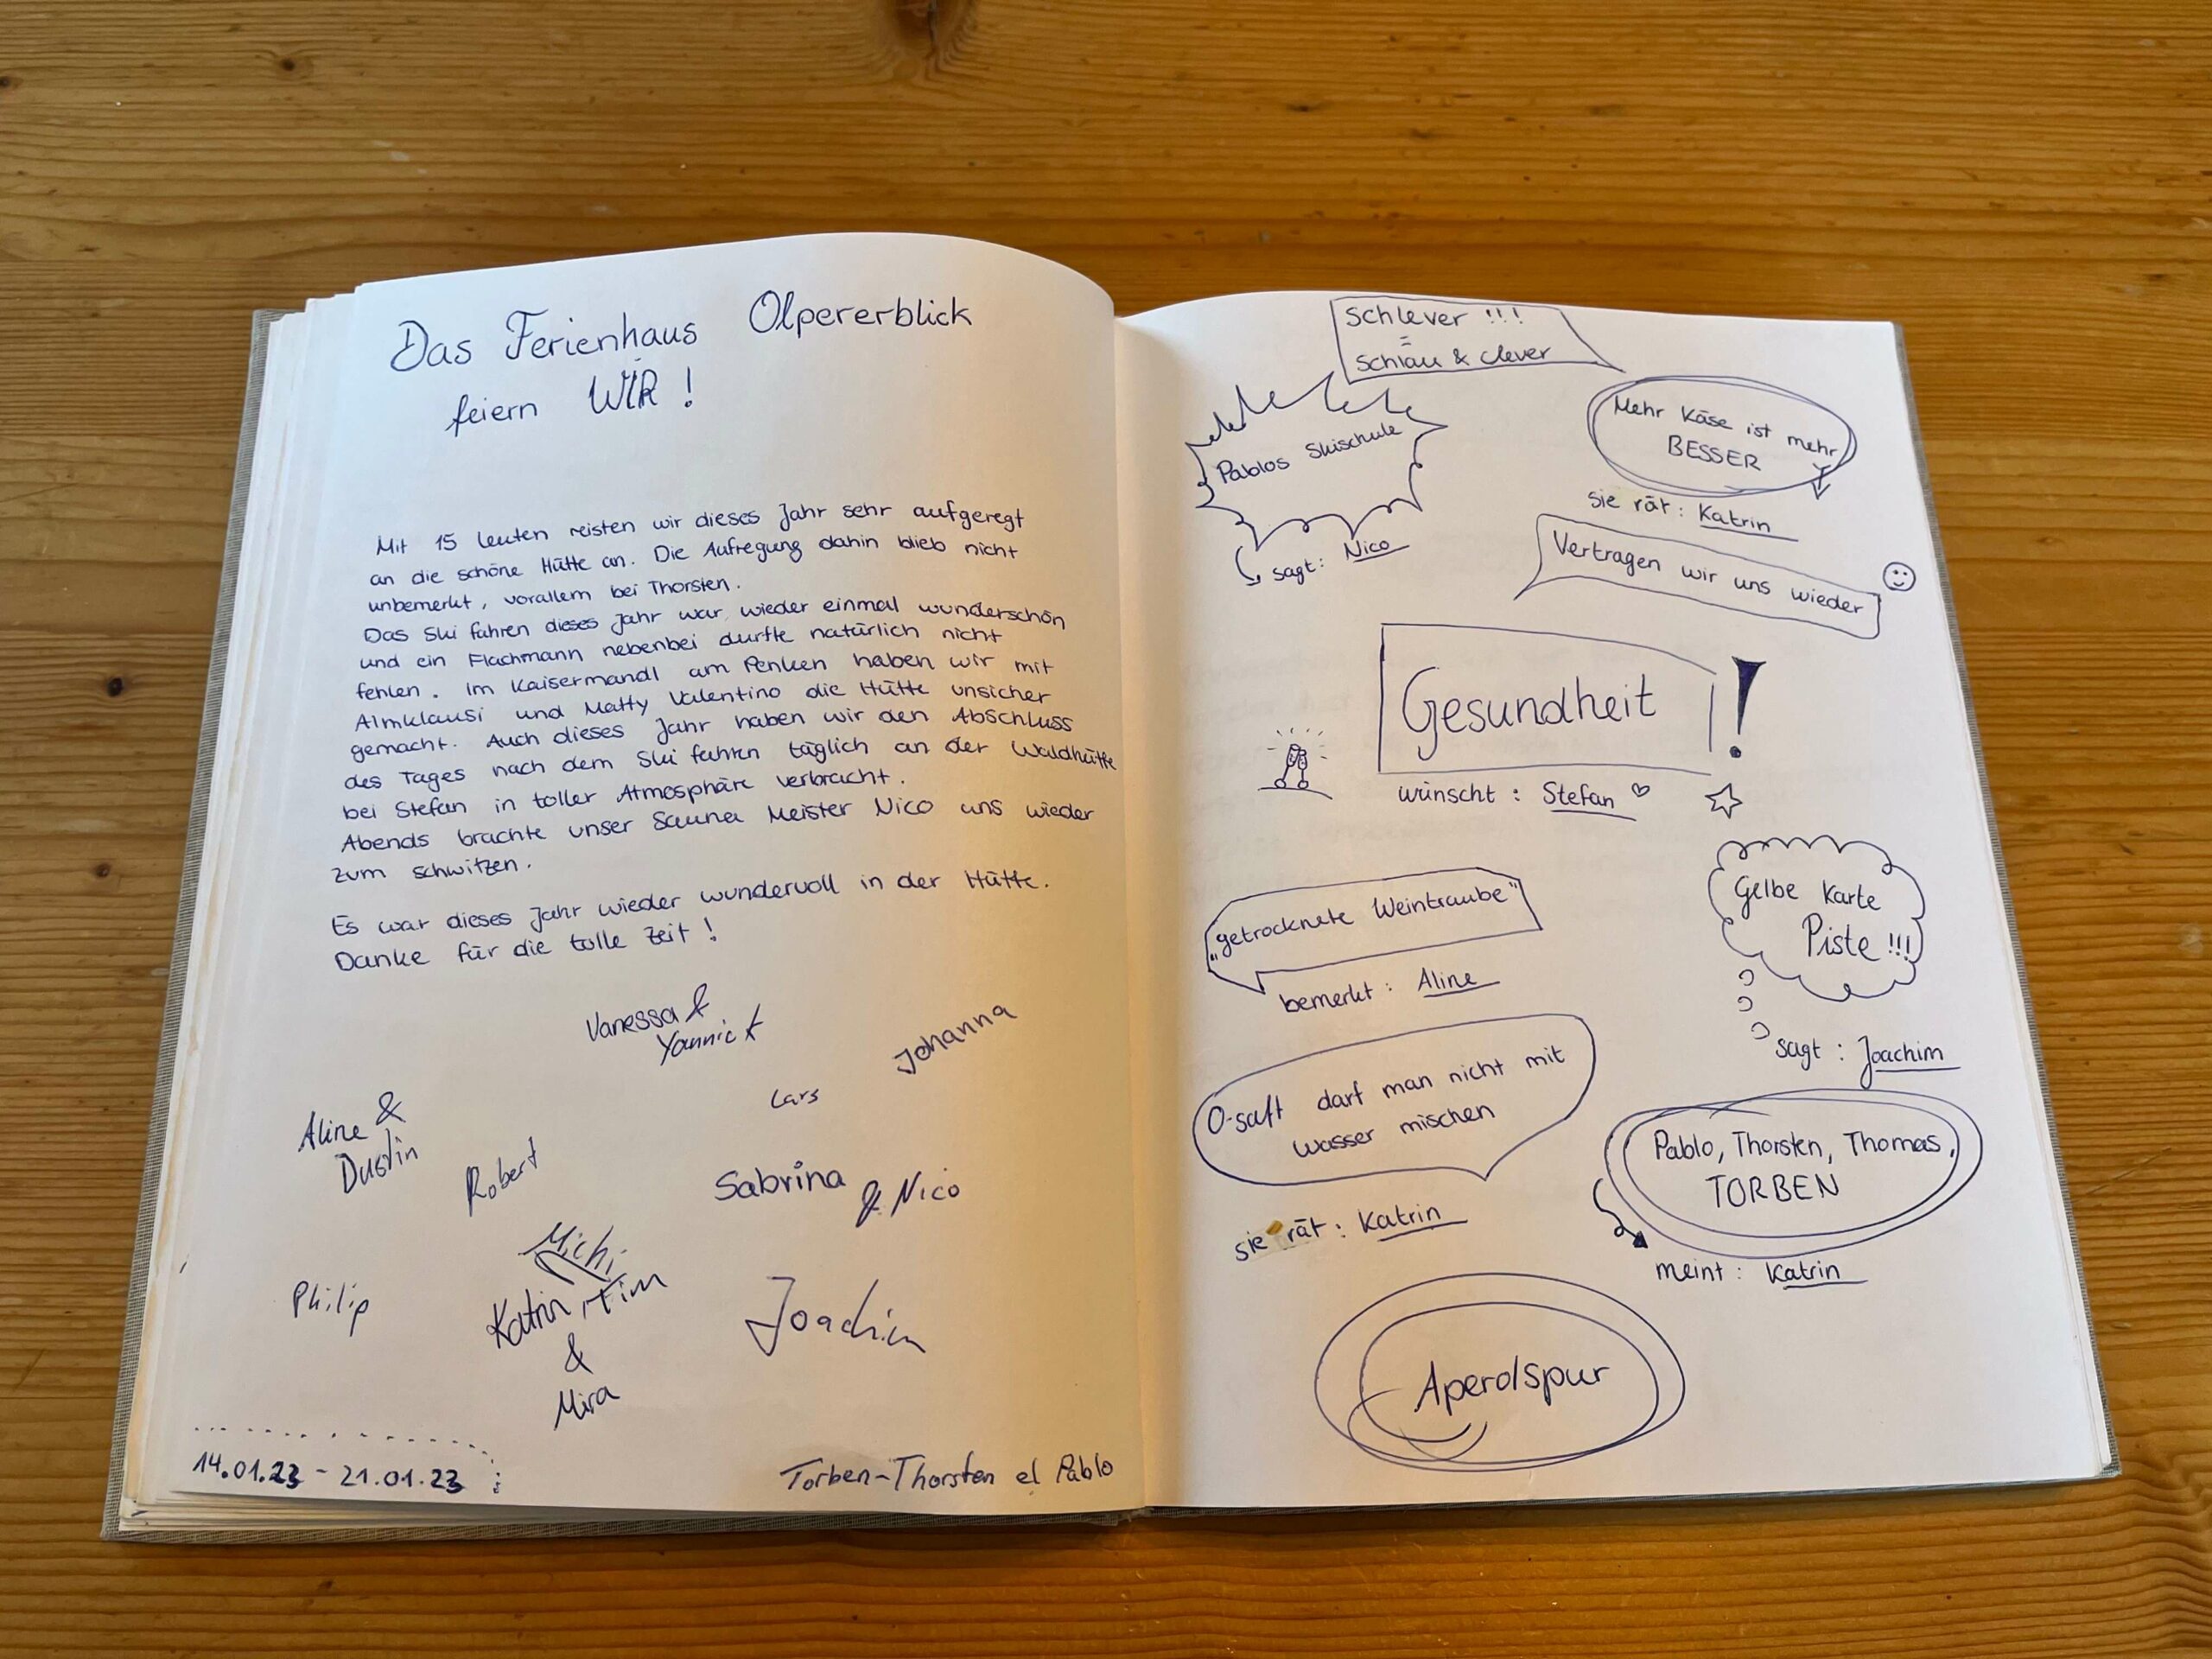 Das Ferienhaus Olpererblick
feiern WIR !
Mit 15 Leuten reisten wir dieses Jahr sehr aufgeregt
an die schöne Hütte an. Die Aufregung dahin blieb nicht
unbemerkt, vorallem bei Thorsten.
Das Ski fahren dieses Jahr war wieder einmal wunderschön
und ein Flachmann nebenbei durfte natürlich nicht
fehlen. Im Kaisermandl am Penken haben wir mit
Almklausi und Matty Valentino die Hütte unsicher
gemacht. Auch dieses Jahr haben wir den Abschluss
des Tages nach dem Ski fahren täglich an der Waldhütte
bei Stefan in toller Atmosphäre verbracht.
Abends brachte unser Sauna Meister Nico uns wieder
zum schwitzen.
Es war dieses Jahr wieder wundervoll in der Hütte.
Danke für die tolle Zeit !
Vanessa &
Yannick
Johanna
Lars
Aline &
Dustin
Robert
Sabrina
& Nico
Michi
Philip
Katrin, Tim
&
Mira
Joachim
14.01.23 - 21.01.23
Torben-Thorsten el Pablo
Schlever !!!
=
Schlau & clever
Pablos Skischule
sagt: Nico
Mehr Käse ist mehr
BESSER
sie rät: Katrin
Vertragen wir uns wieder
Gesundheit !
wünscht : Stefan
"getrocknete Weintraube"
bemerkt: Aline
Gelbe Karte
Piste !!!
sagt : Joachim
O-saft darf man nicht mit
wasser mischen
sie rät: Katrin
Pablo, Thorsten, Thomas,
TORBEN
meint: Katrin
Aperolspur